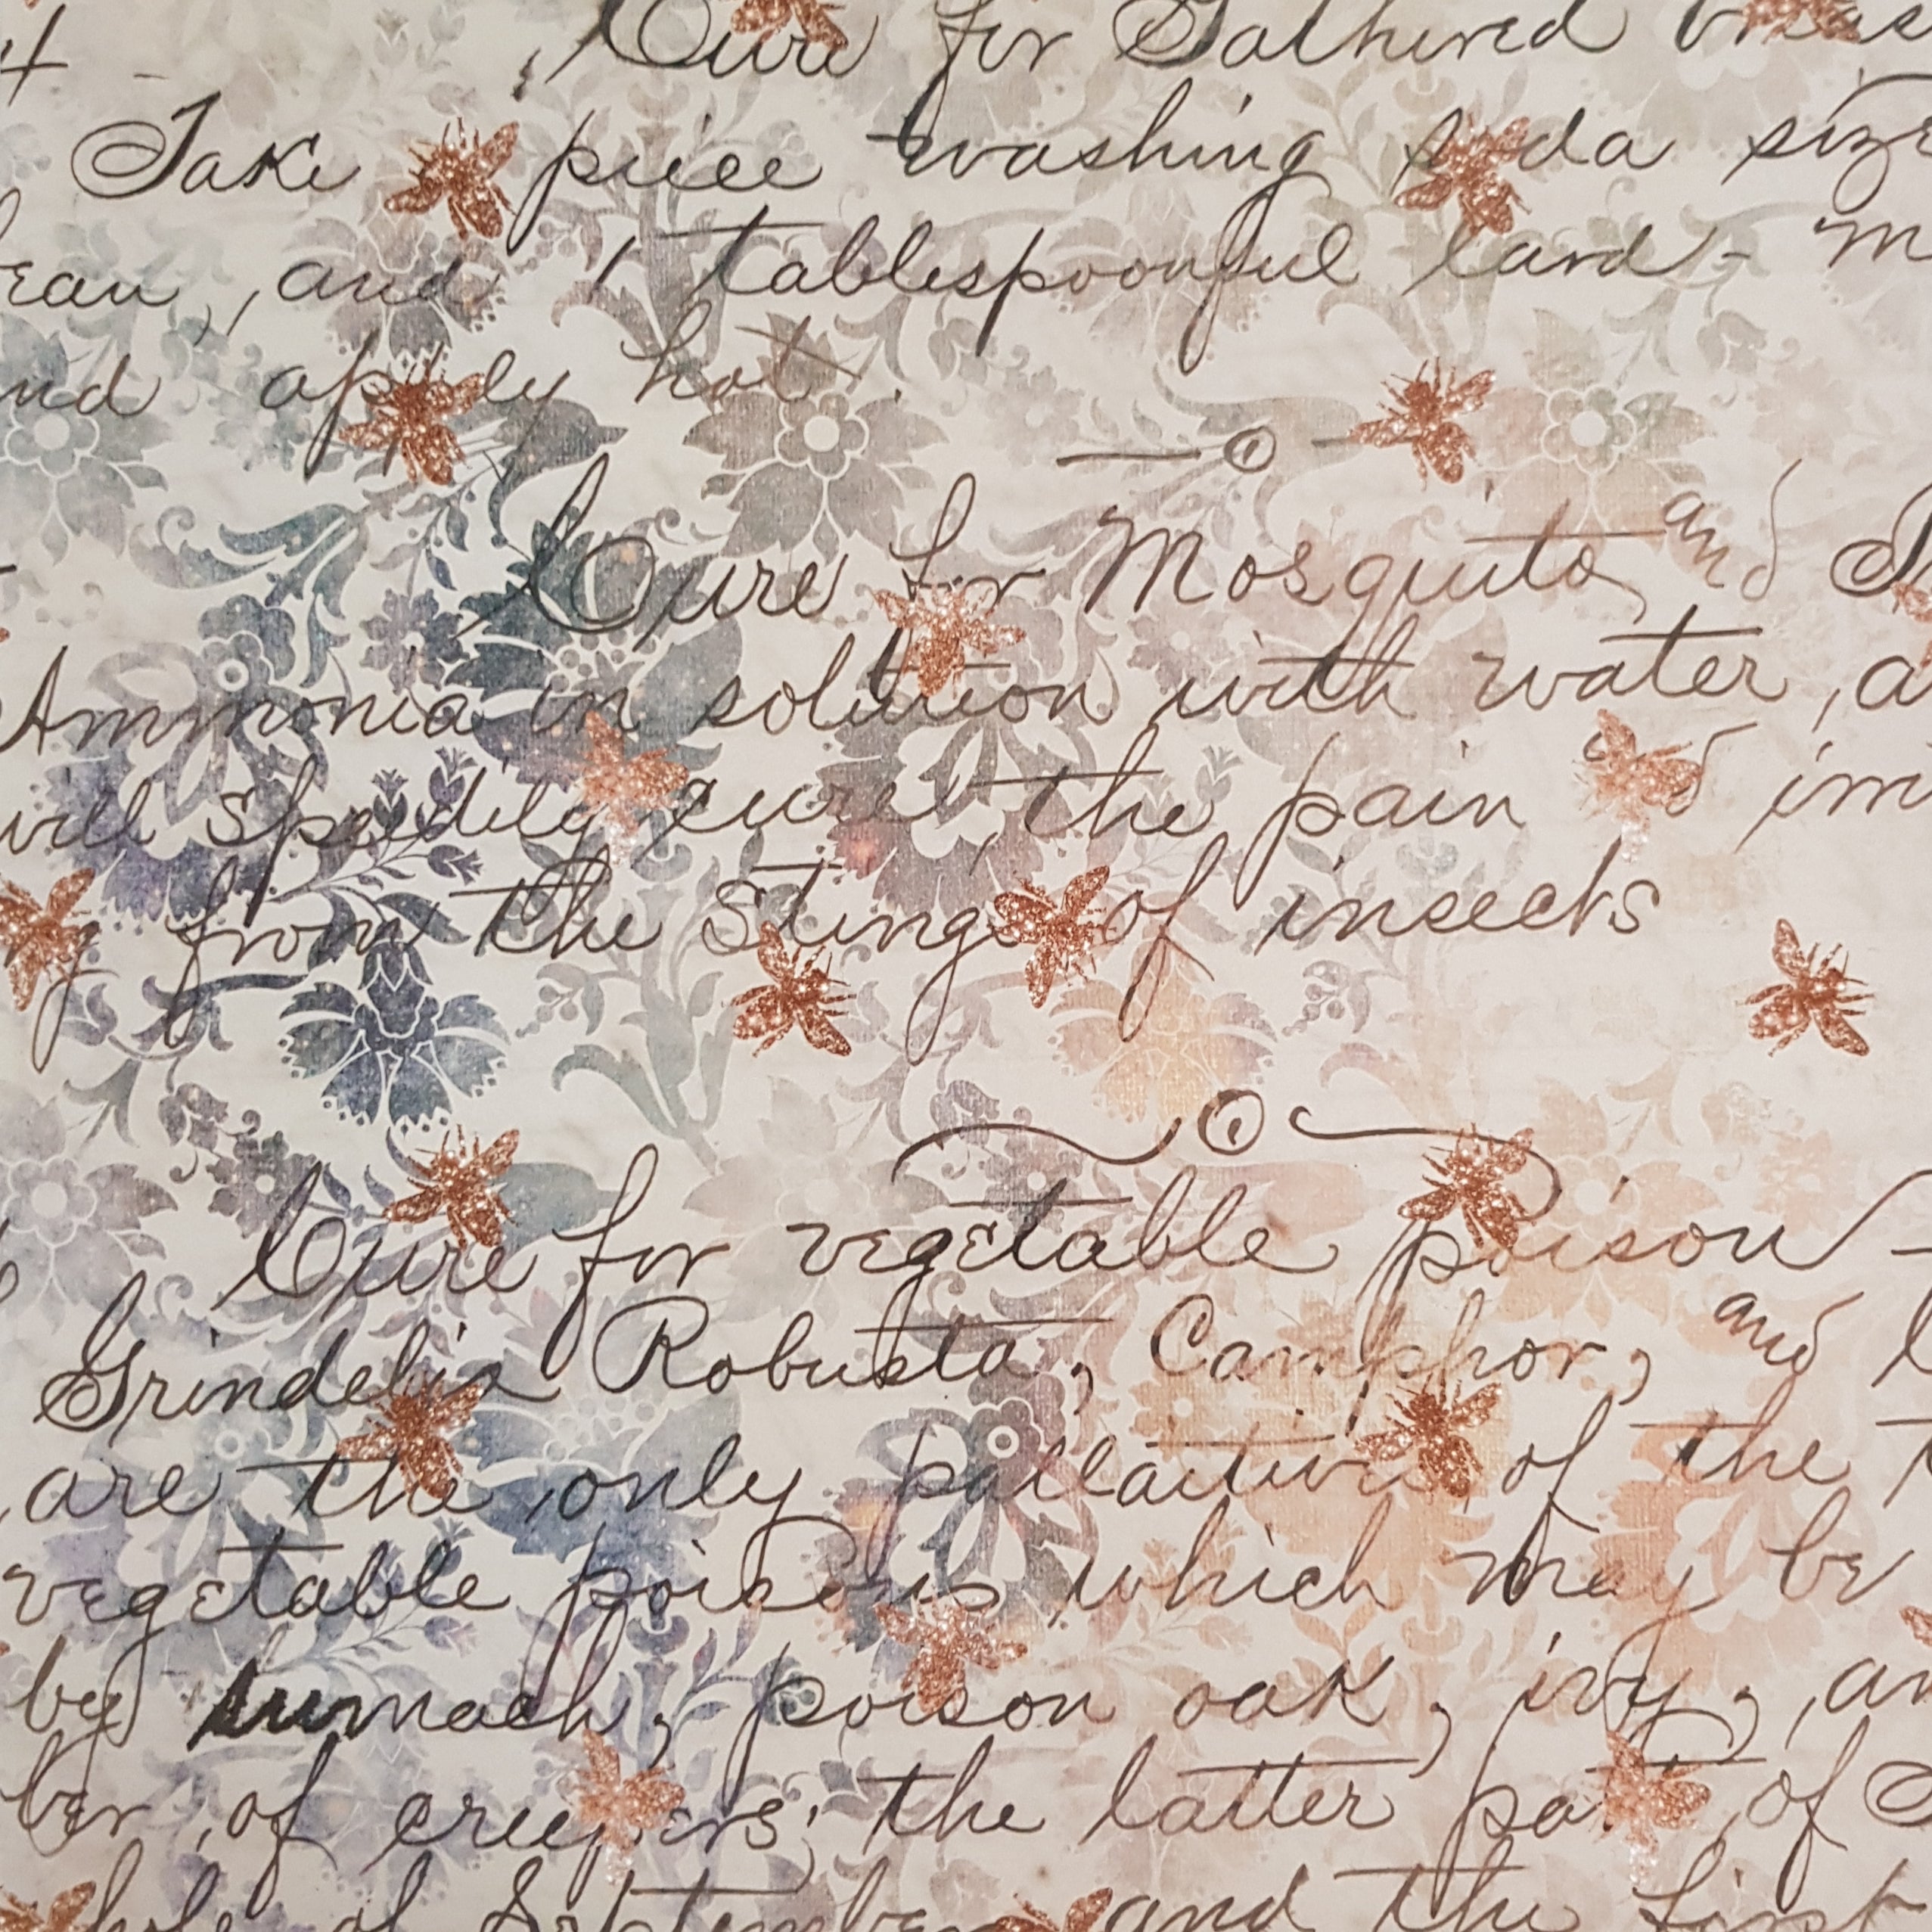 Cure for Gathered breas
Take piece washing soda siz
ean, and 1 tablespoonful lard - m
nd apply hot.
Cure for Mosquito and
Ammonia in solution with water, a
will speedily cure the pain
from the stings of insects
Cure for vegetable poison
Grindelia Robusta, Camphor, and
are the only palliative of the
vegetable poisons which may be
by sumach, poison oak, ivy, an
ber, of creepers; the latter part of S
hole of September and the first